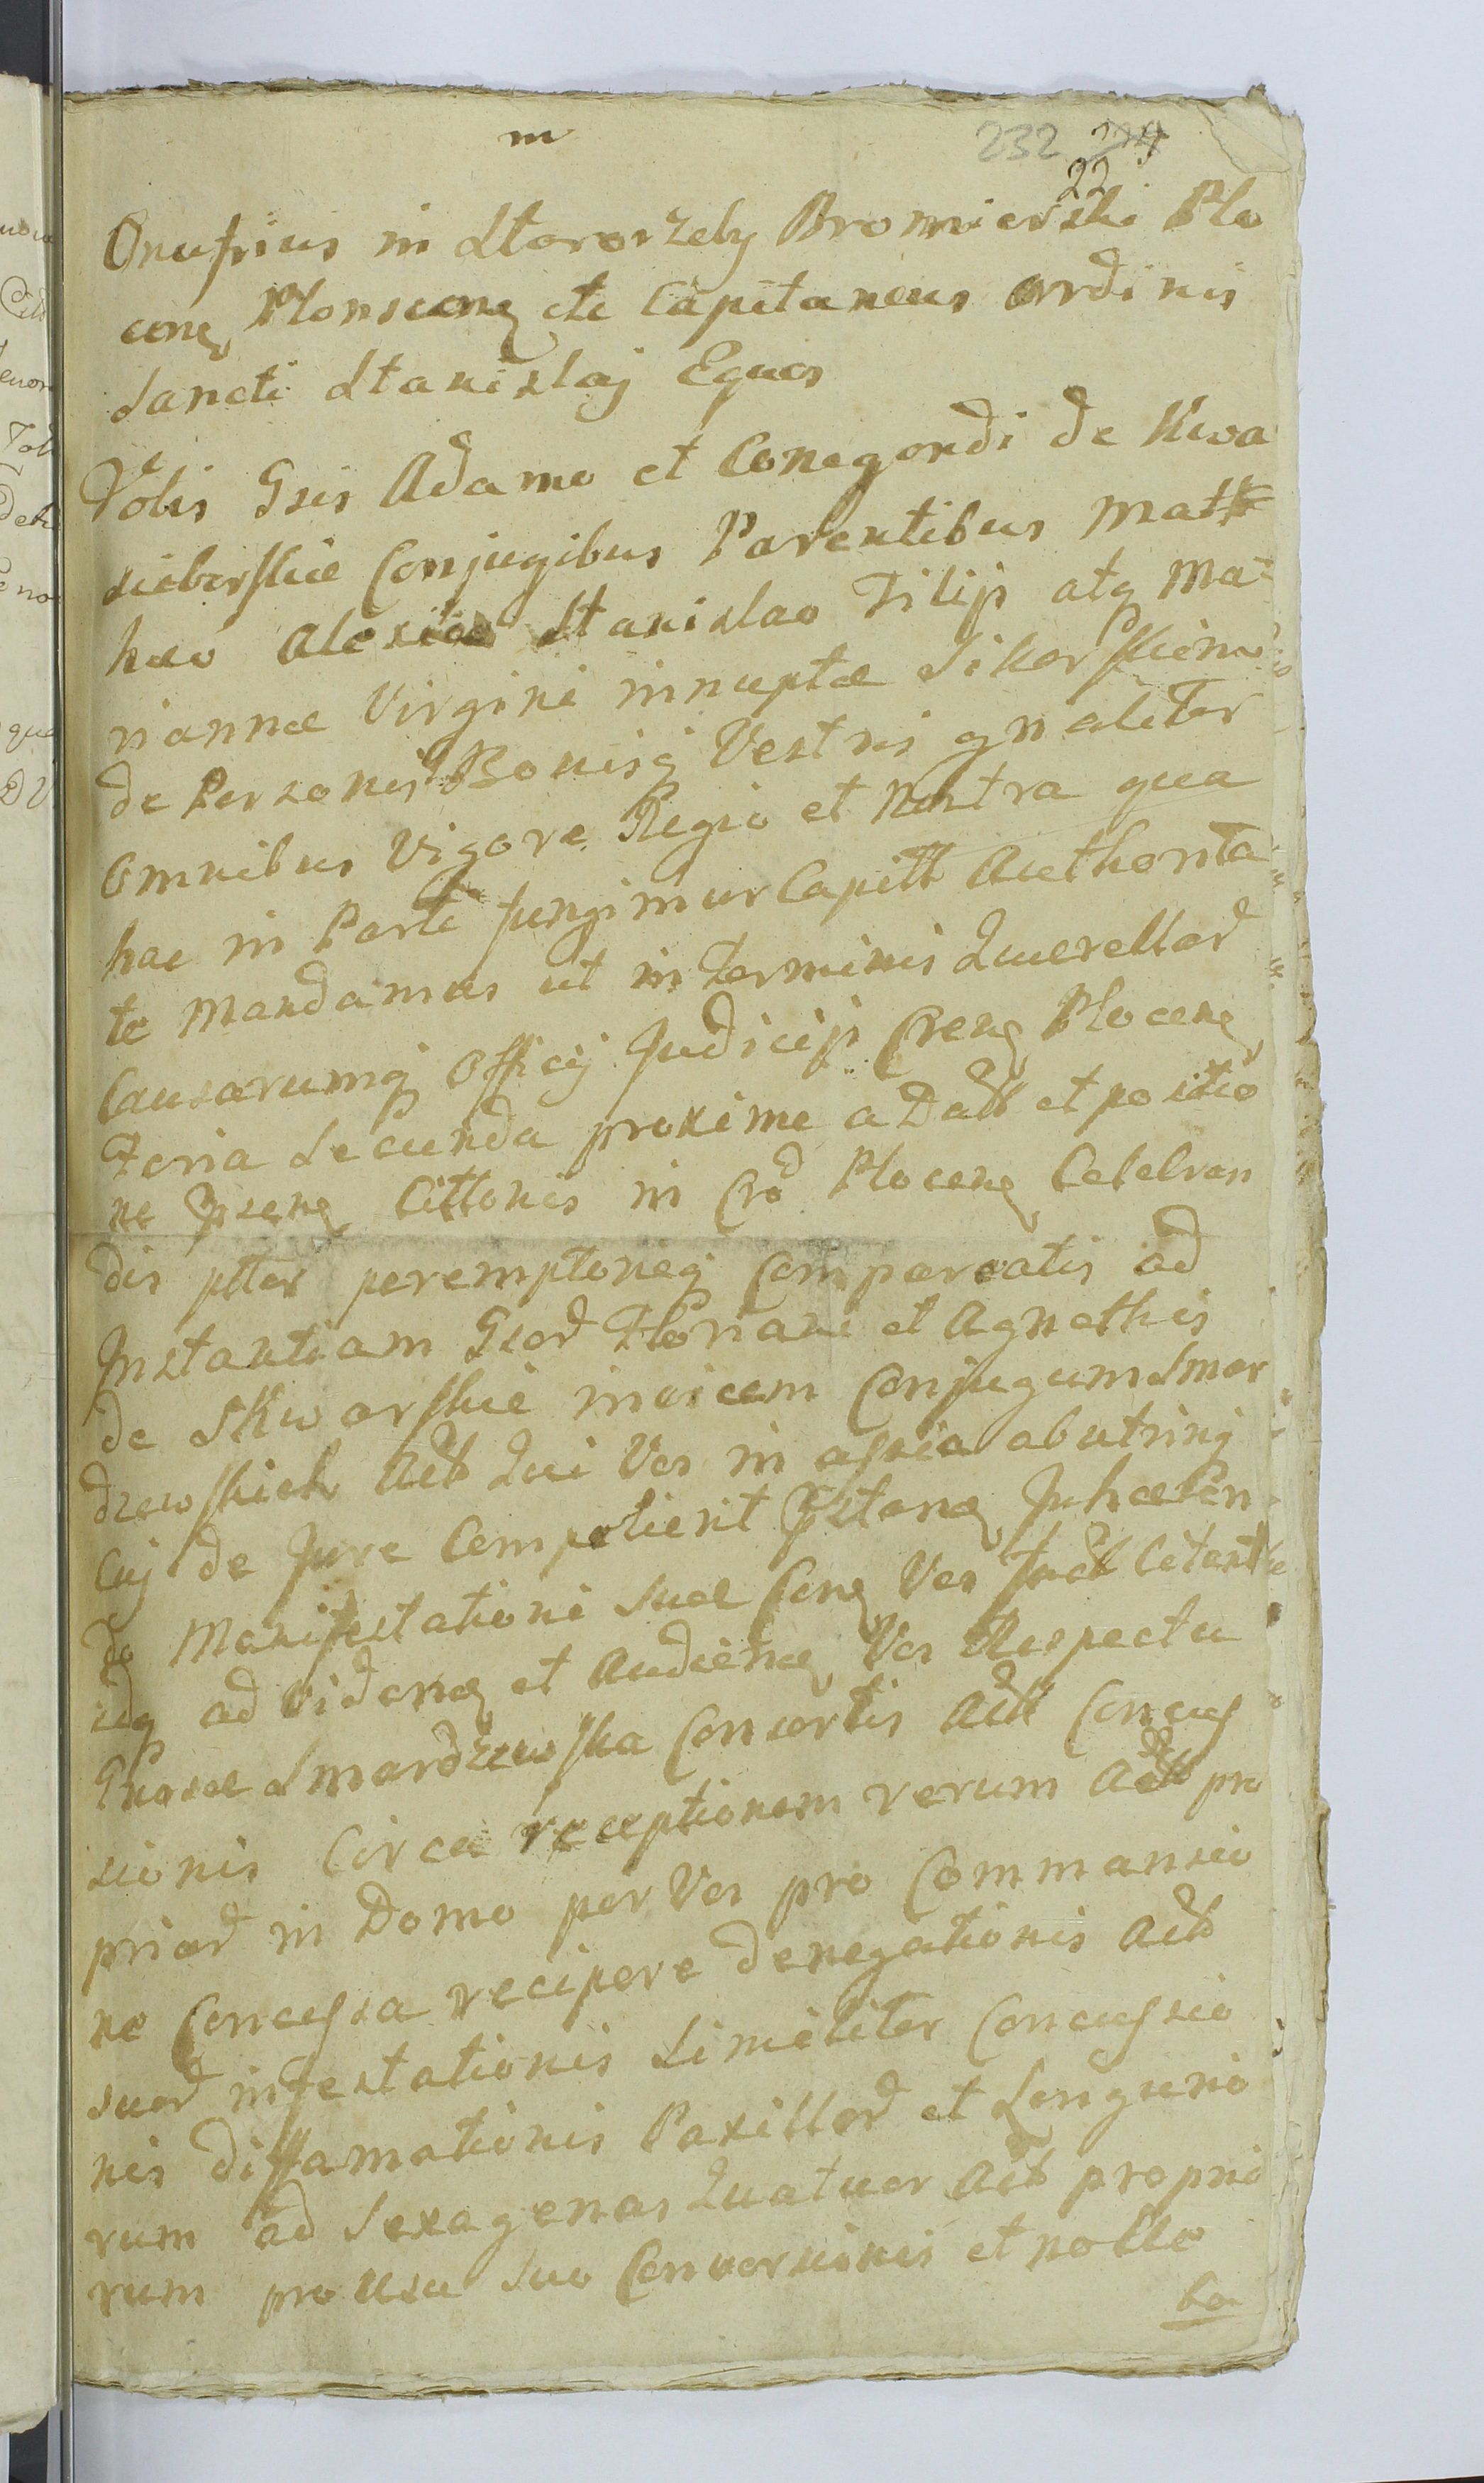 m
232 224
22
Onufrius in Starorzeby Bromierski Plo
cen Plonscen etc Capitaneus Ordinis
Sancti Stanislaj Eques
Vobis Gsis Adamo et Conegondi de Kwa
sieborskie Conjugibus Parentibus Matt
haeo Stanislao Filijs atq Ma=
riannae Virgini innuptae Sikorskim
de Personis Bonisq Vestris gnaliter
omnibus Vigore Regio et Nostra qua
hac in Parte fungimur Capitt Authorita
te Mandamus ut in Terminis Querellar
Causarumq Officij Judicijs Cren Plocen
Feria Secunda proxime a Datt et positio
ne Psen Cittonis in Cro Plocen Celebran
dis ptter peremptorieq Compareatis ad
Instantiam Gsor Floriani et Agnethis
de Skwarskie invicem Conjugum Smar
dzewskich Actt Qui Vos in assia ab utrinq
cuj de Jure Competierit Pstan Inhaeren
do Manifestationi suae Cen Vos Citant
idq ad Viden et Audien Vos Respectu
Gnosae Smardzewska Consortis Actt Concus
sionis Circa receptionem rerum Actt pro
priar in Domo per Vos pro Commansio
ne Concessa recipere denegationis Actt
suar infestationis Similiter Concussio
nis diffamationis Paxillor et Longurio
rum ad Sexagenas Quatuor Actt proprio
rum pro Usu suo Conversionis et nollo
bo